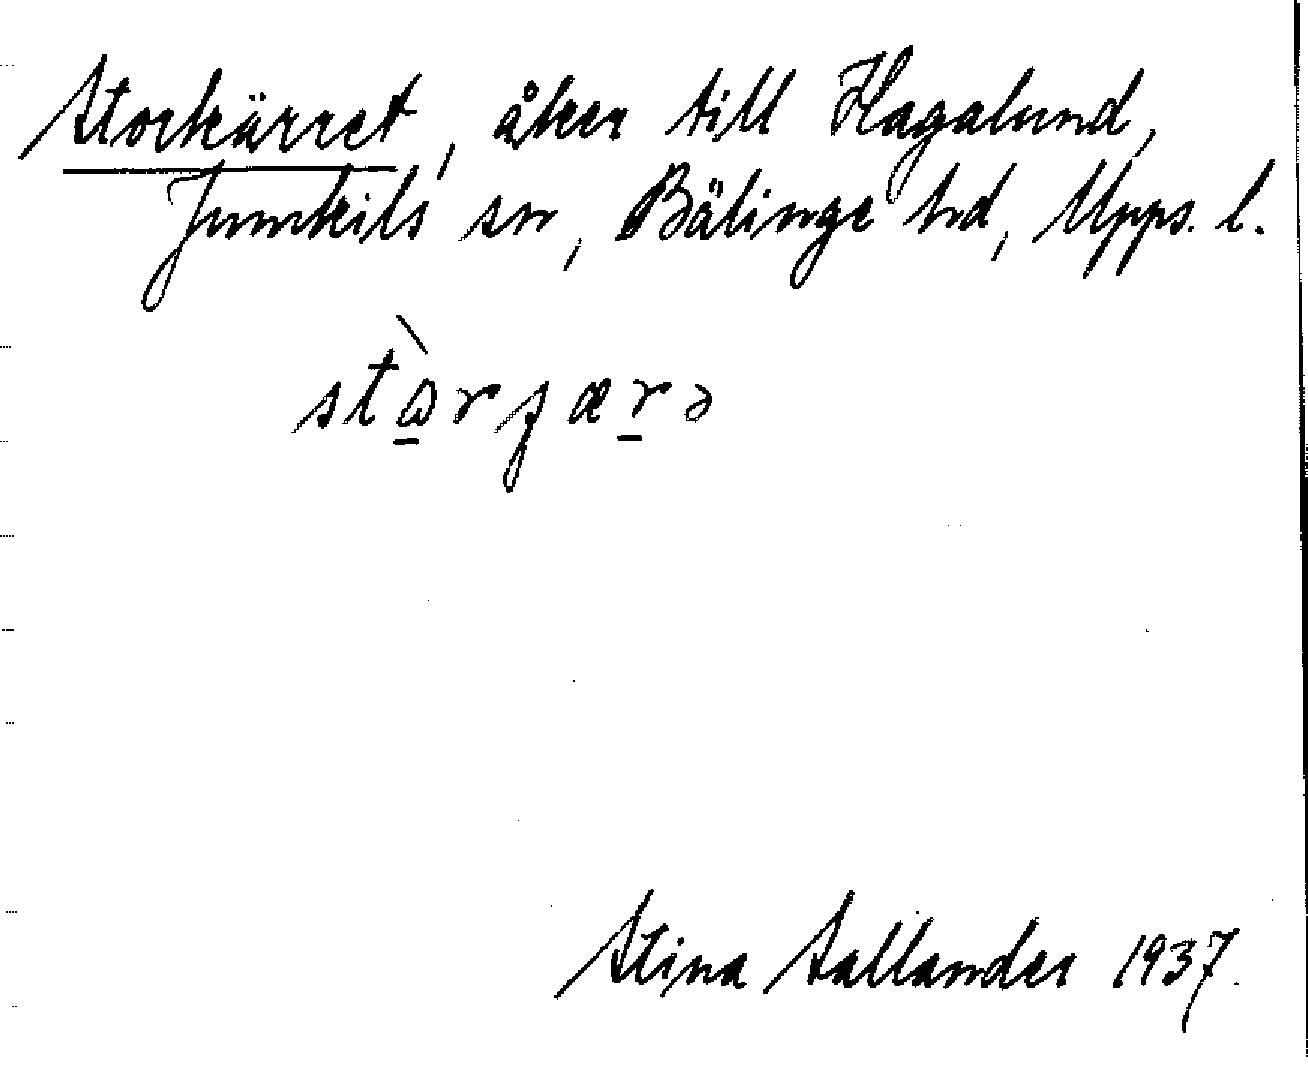 Storkärret, åker till Hagalund,
Jumkils sn, Bälinge hd, Upps. l.
Stina Sallander 1937.